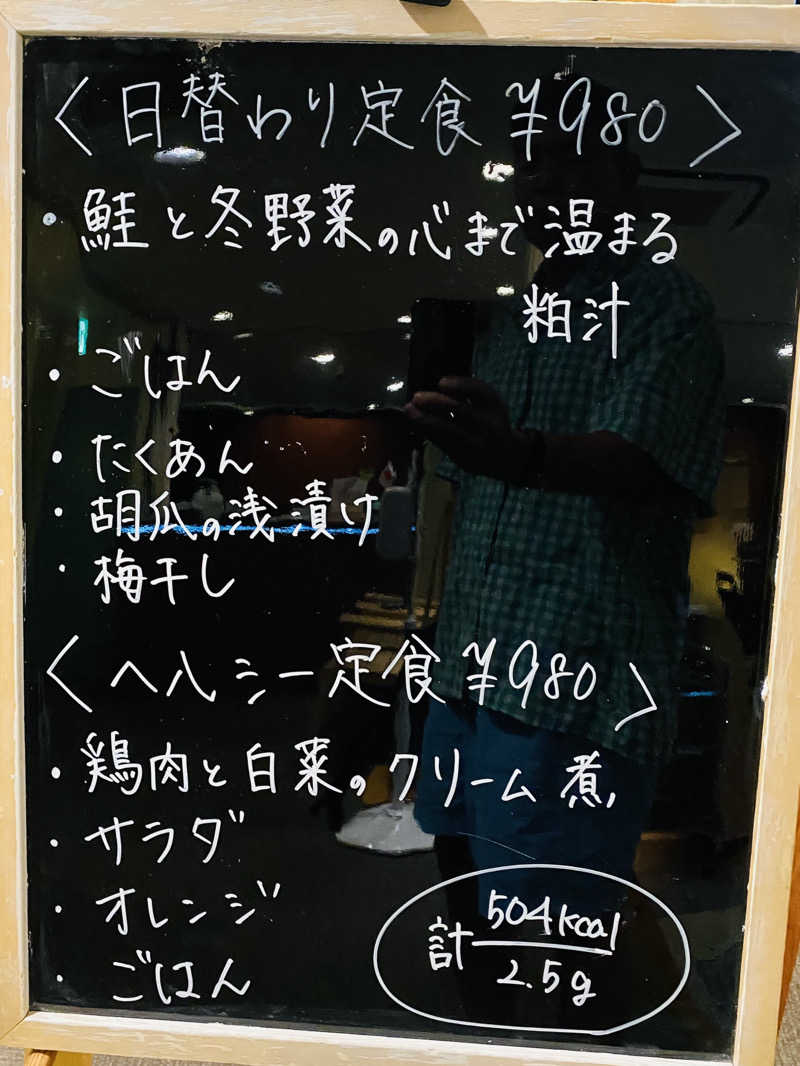 〈日替わり定食 ¥980〉
・鮭と冬野菜の心まで温まる
粕汁
・ごはん
・たくあん
・胡瓜の浅漬け
・梅干し
〈ヘルシー定食 ¥980〉
・鶏肉と白菜のクリーム煮
・サラダ
・オレンジ
・ごはん
計 504kcal
2.5g